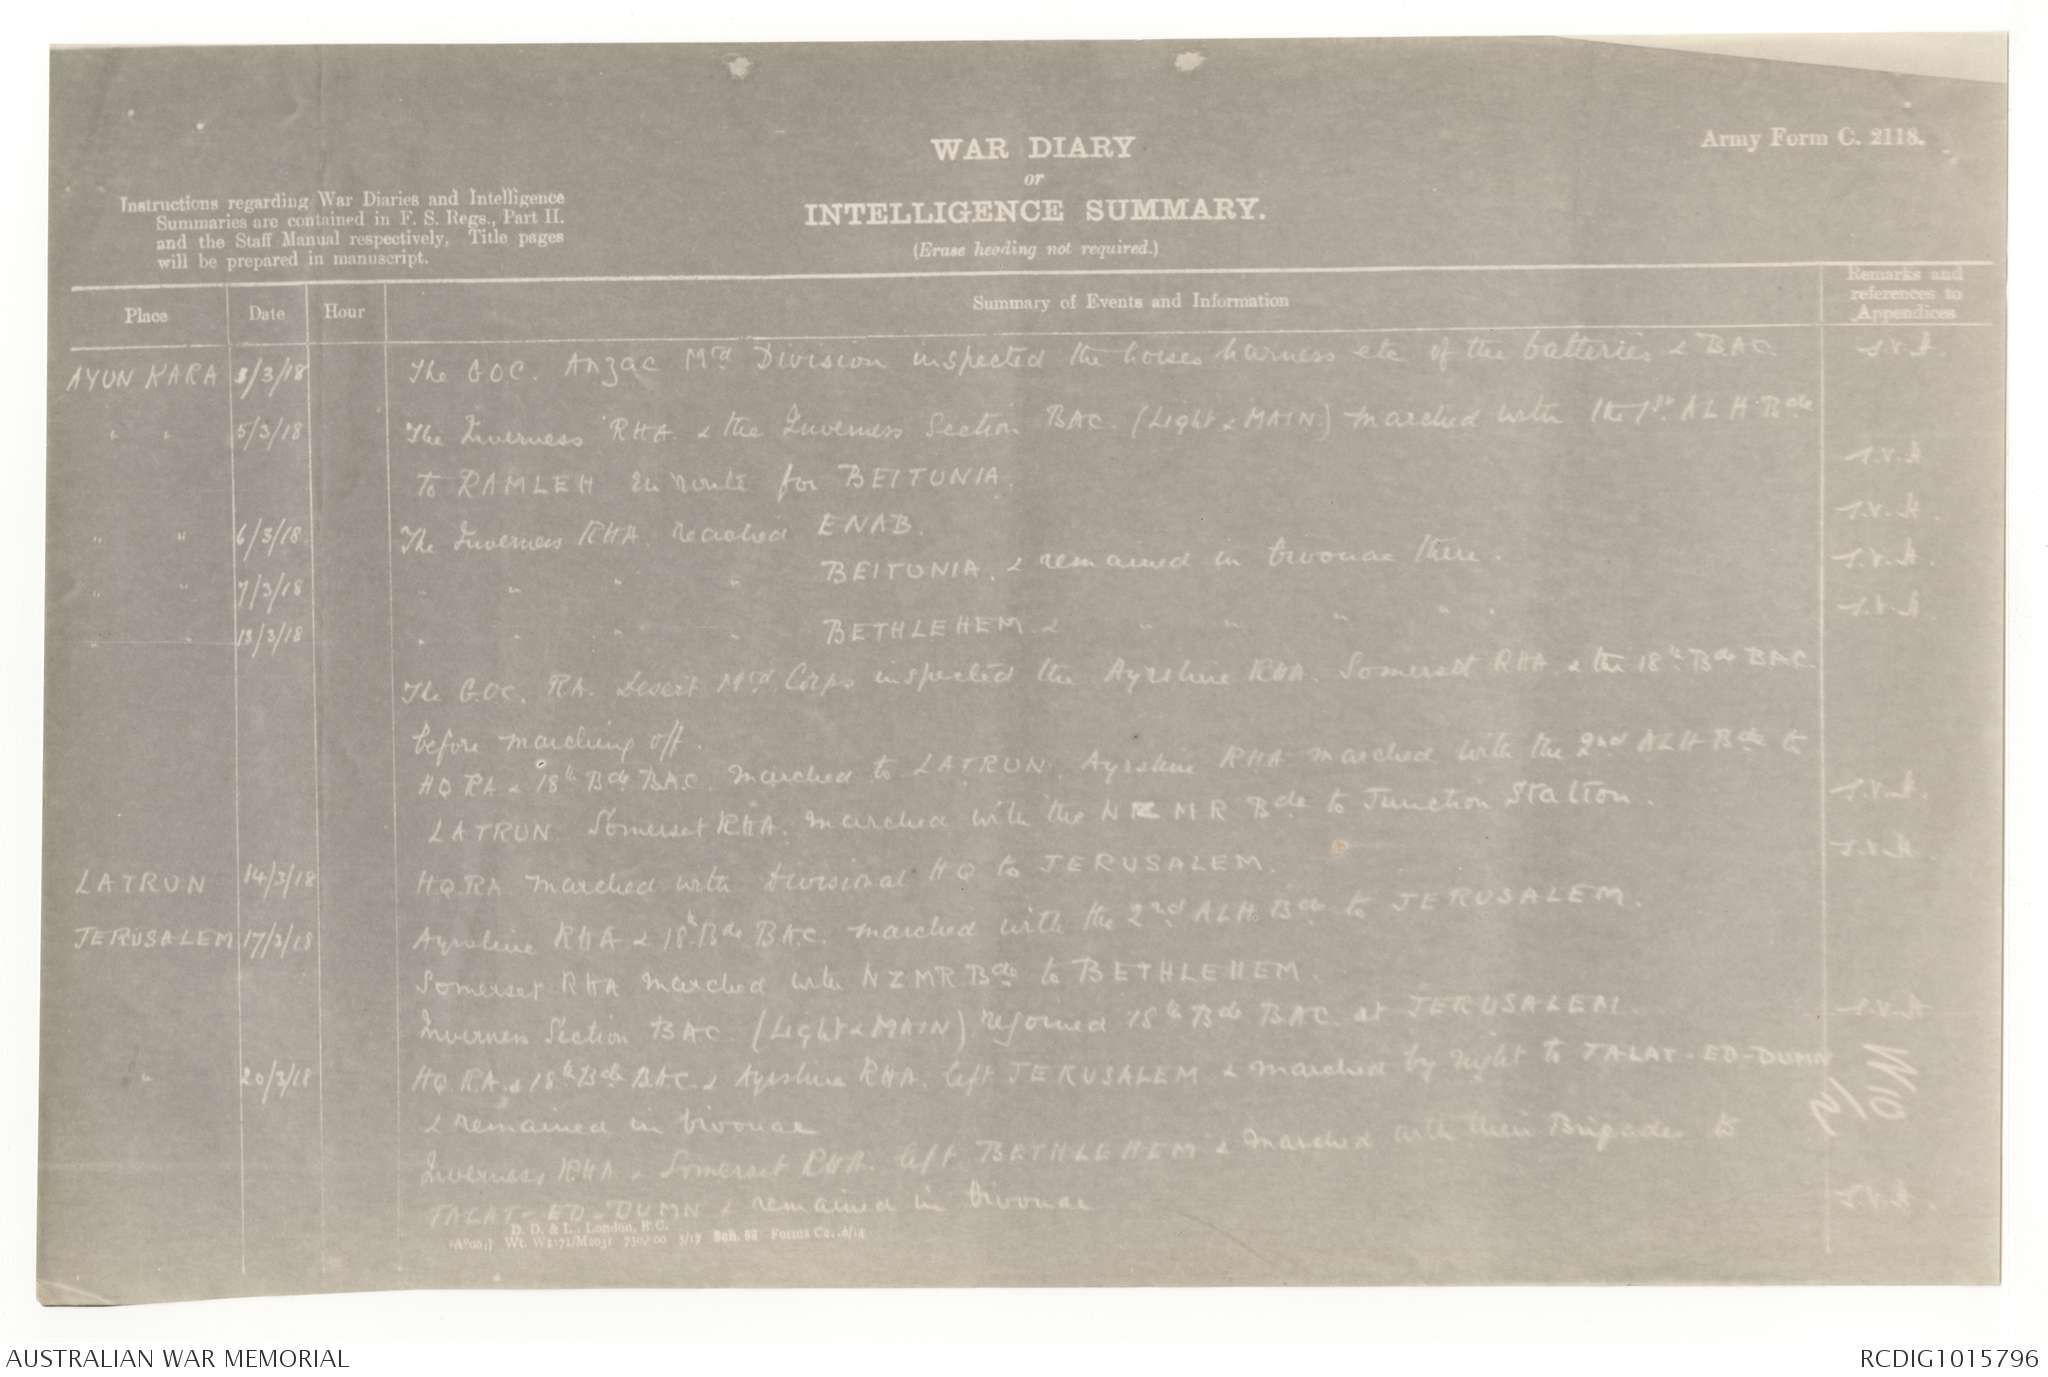 Army Form C. 2118.
WAR DIARY
or
INTELLIGENCE SUMMARY.
(Erase heading not required.)
Instructions regarding War Diaries and Intelligence
Summaries are contained in F. S. Regs., Part II.
and the Staff Manual respectively. Title pages
will be prepared in manuscript.
Place Date Hour Summary of Events and Information Remarks and references to Appendices
AYUN KARA 3/3/18 The G.O.C. Anzac Mtd Division inspected the horses harness etc of the batteries & BAC.
" " 5/3/18 The Inverness RHA. & the Inverness Section BAC. (Light & MAIN) marched with the 1st ALH Bde
to RAMLEH en route for BEITUNIA.
" " 6/3/18 The Inverness RHA. reached ENAB.
" " 7/3/18 " " " " BEITUNIA. & remained in bivouac there.
" " 13/3/18 " " " " BETHLEHEM & " " " "
The G.O.C. RA. Desert Mtd Corps inspected the Ayrshire RHA. Somerset RHA. & the 18th Bde BAC.
before marching off.
HQ RA & 18th Bde BAC. marched to LATRUN. Ayrshire RHA marched with the 2nd ALH Bde to
LATRUN. Somerset RHA. marched with the NZMR Bde to Junction Station.
LATRUN 14/3/18 HQ.RA marched with Divisional HQ to JERUSALEM.
JERUSALEM 17/3/18 Ayrshire RHA & 18th Bde BAC. marched with the 2nd ALH. Bde to JERUSALEM.
Somerset RHA marched with NZMR Bde to BETHLEHEM.
Inverness Section BAC. (Light & MAIN) rejoined 18th Bde BAC. at JERUSALEM.
" 20/3/18 HQ.RA. & 18th Bde BAC. & Ayrshire RHA. left JERUSALEM & marched by night to TALAT-ED-DUMN
& remained in bivouac
Inverness RHA & Somerset RHA. left BETHLEHEM & marched with their Brigades to
TALAT-ED-DUMN & remained in bivouac
D. D. & L., London, E.C.
Sch. 52 Forms
AUSTRALIAN WAR MEMORIAL
RCDIG1015796